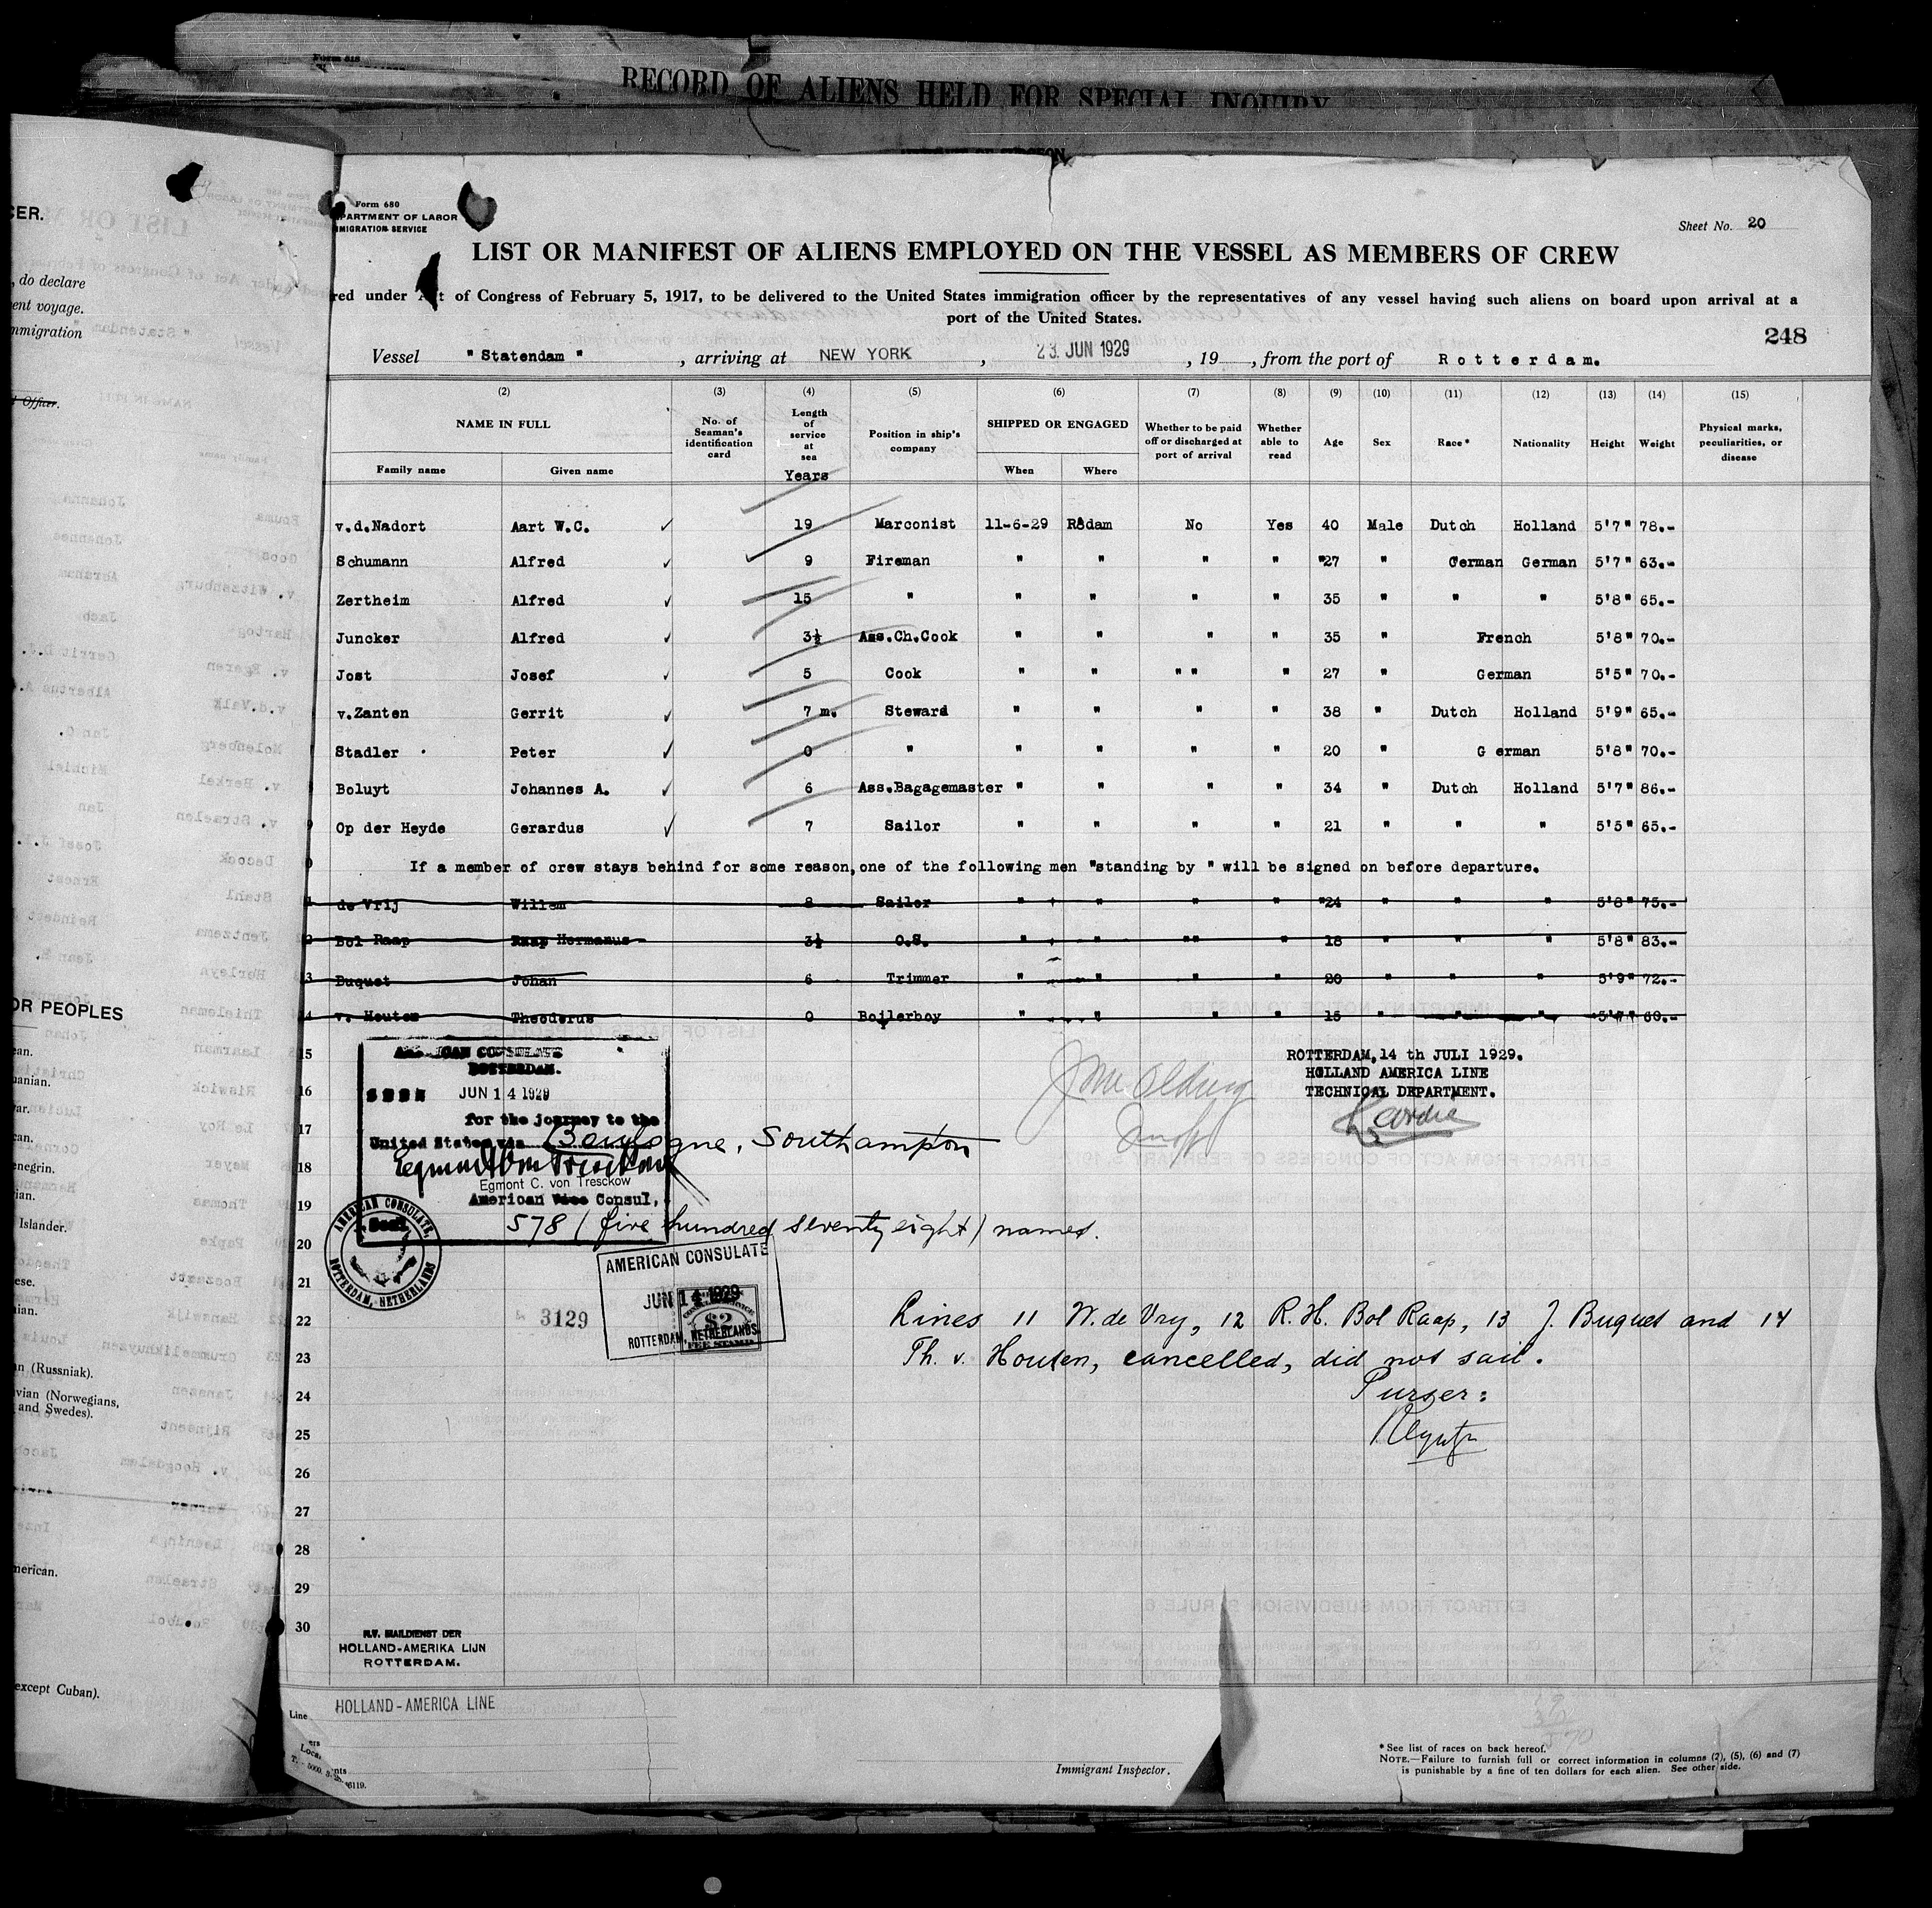 Form 618
RECORD OF ALIENS HELD FOR SPECIAL INQUIRY
CER.
, do declare
ent voyage.
mmigration
d Officer.
OR PEOPLES
ean.
uanian.
var.
can.
enegrin.
rian.
Islander.
ese.
nian.
an (Russniak).
vian (Norwegians,
and Swedes).
merican.
except Cuban).
Form 680
PARTMENT OF LABOR
MIGRATION SERVICE
Sheet No. 20
LIST OR MANIFEST OF ALIENS EMPLOYED ON THE VESSEL AS MEMBERS OF CREW
red under Act of Congress of February 5, 1917, to be delivered to the United States immigration officer by the representatives of any vessel having such aliens on board upon arrival at a
port of the United States.
248
Vessel "Statendam", arriving at NEW YORK, 23 JUN 1929, 19, from the port of Rotterdam.
(2) (3) (4) (5) (6) (7) (8) (9) (10) (11) (12) (13) (14) (15)
NAME IN FULL No. of Seaman's identification card Length of service at sea Position in ship's company SHIPPED OR ENGAGED Whether to be paid off or discharged at port of arrival Whether able to read Age Sex Race* Nationality Height Weight Physical marks, peculiarities, or disease
Family name Given name Years When Where
v.d.Nadort Aart W.C. ✓ 19 Marconist 11-6-29 Rdam No Yes 40 Male Dutch Holland 5'7" 78.-
Schumann Alfred ✓ 9 Fireman " " " " "27 " German German 5'7" 63.-
Zertheim Alfred ✓ 15 " " " " " 35 " " " 5'8" 65.-
Juncker Alfred ✓ 3½ Ass.Ch.Cook " " " " 35 " French 5'8" 70.-
Jost Josef ✓ 5 Cook " " " " " 27 " German 5'5" 70.-
v.Zanten Gerrit ✓ 7 m. Steward " " " " 38 " Dutch Holland 5'9" 65.-
Stadler Peter ✓ 0 " " " " " 20 " G erman 5'8" 70.-
Boluyt Johannes A. ✓ 6 Ass.Bagagemaster " " " " 34 " Dutch Holland 5'7" 86.-
9 Op der Heyde Gerardus ✓ 7 Sailor " " " " 21 " " " 5'5" 65.-
0 If a member of crew stays behind for some reason,one of the following men "standing by " will be signed on before departure.
1 de Vrij Willem 8 Sailor " " " " "24 " " " 5'8" 75.-
2 Bol Raap Raap Hermanus 3½ O.S. " " "" " 18 " " " 5'8" 83.-
3 Buquet Johan 6 Trimmer " " " " 20 " " " 5'9" 72.-
4 v. Houten Theodorus 0 Boilerboy " " " " 15 " " " 5'4" 60.-
15
16
17
18
19
20
21
22
23
24
25
26
27
28
29
30
AMERICAN CONSULATE
ROTTERDAM.
SEEN JUN 14 1929
for the journey to the
United States via Boulogne, Southampton
Egmont C. von Tresckow
Egmont C. von Tresckow
American Vice Consul.
Seal
AMERICAN CONSULATE,
ROTTERDAM, NETHERLANDS
578 (five hundred seventy eight) names.
ROTTERDAM, 14 th JULI 1929.
HOLLAND AMERICA LINE
TECHNICAL DEPARTMENT.
3129
AMERICAN CONSULATE
JUN 14 1929
$2
FEE STAMP
ROTTERDAM, NETHERLANDS
Lines 11 W. de Vry, 12 R. H. Bol Raap, 13 J. Buquet and 14
Th. v. Houten, cancelled, did not sail.
Purser:
N.V. MAILDIENST DER
HOLLAND-AMERIKA LIJN
ROTTERDAM.
Line HOLLAND-AMERICA LINE
Immigrant Inspector.
*See list of races on back hereof.
NOTE.—Failure to furnish full or correct information in columns (2), (5), (6) and (7)
is punishable by a fine of ten dollars for each alien. See other side.